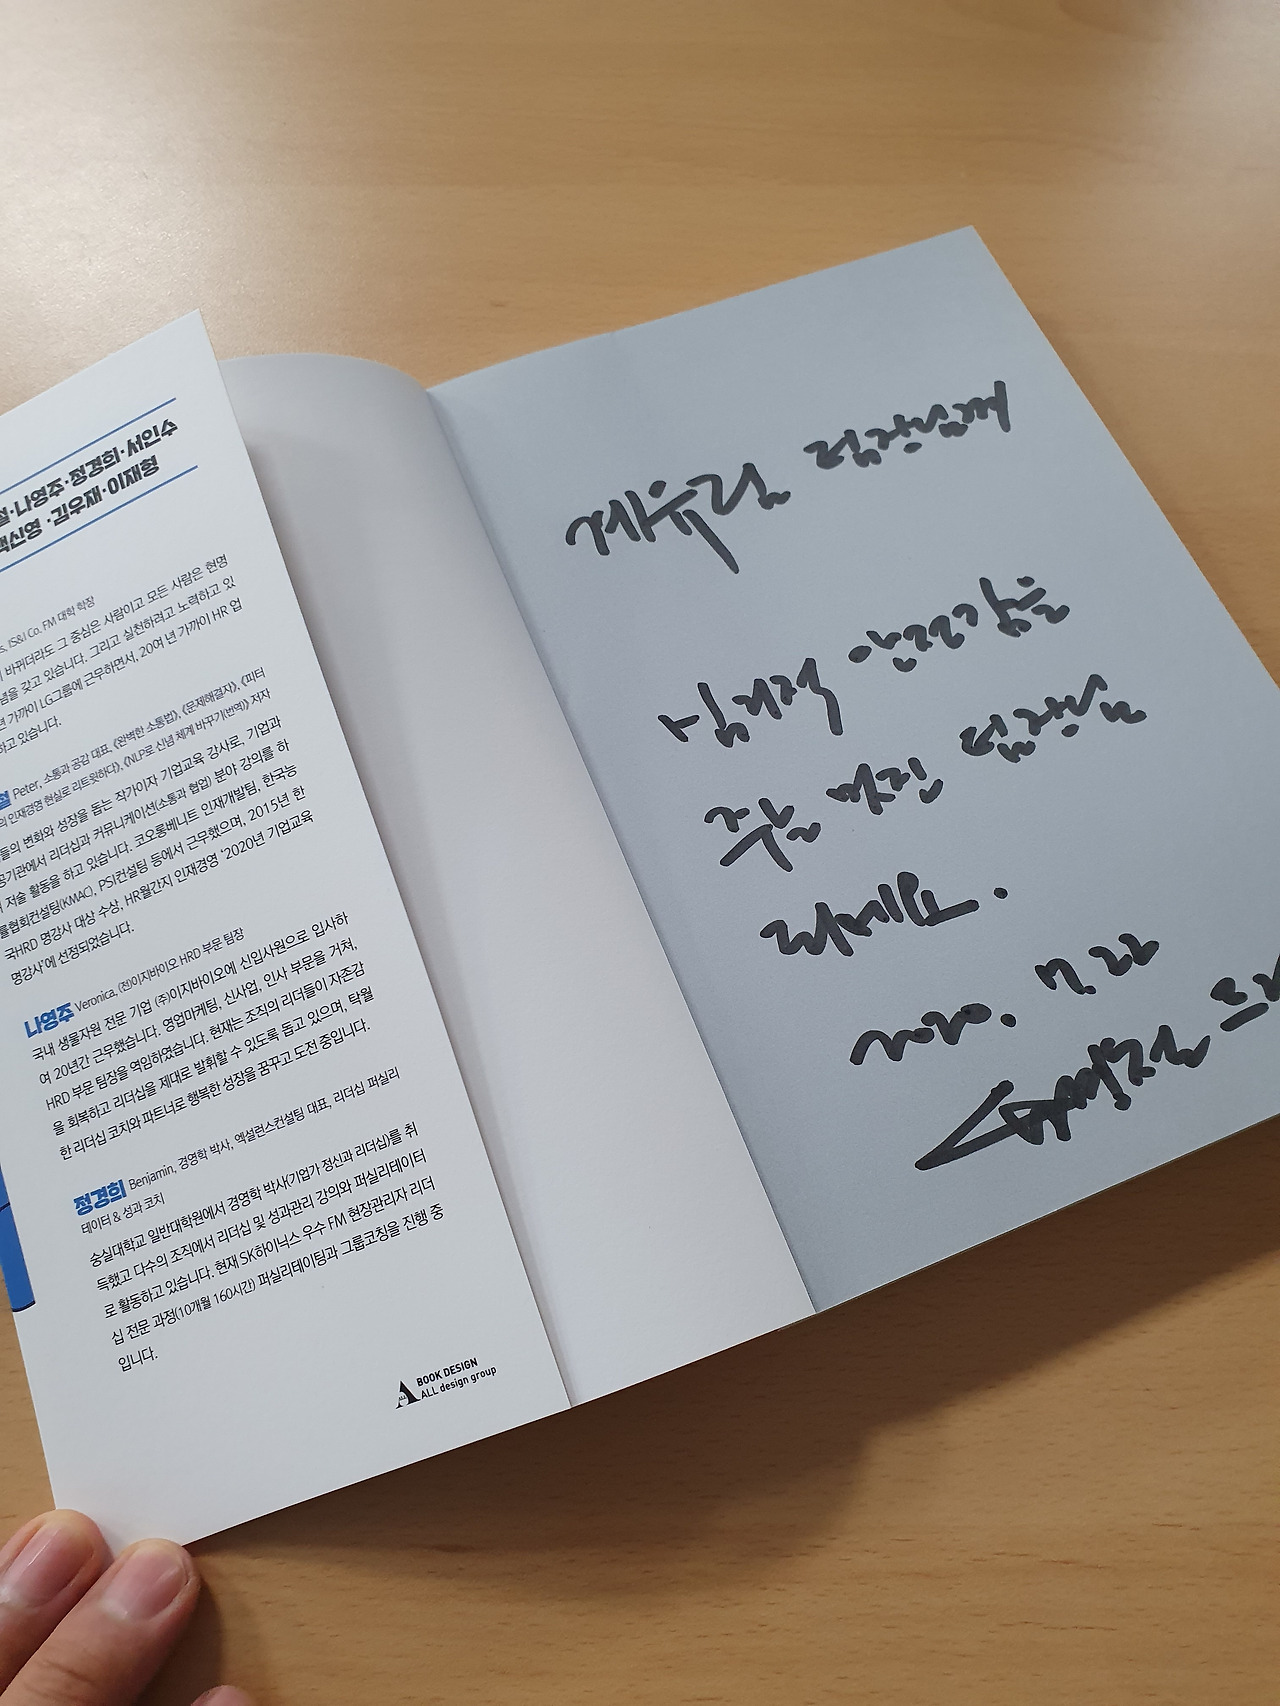 나영주·정경희·서인수
백신영·김우재·이재형
IS&I Co. FM 대학 학장
바뀌더라도 그 중심은 사람이고 모든 사람은 현명
념을 갖고 있습니다. 그리고 실천하려고 노력하고 있
년 가까이 LG그룹에 근무하면서, 20여 년 가까이 HR 업
하고 있습니다.
Peter, 소통과 공감 대표, 《완벽한 소통법》, 《문제해결자》, 《피터
의 인재경영 현실로 리트윗하다》, 《NLP로 신념 체계 바꾸기(번역)》 저자
들의 변화와 성장을 돕는 작가이자 기업교육 강사로, 기업과
공기관에서 리더십과 커뮤니케이션(소통과 협업) 분야 강의를 하
저술 활동을 하고 있습니다. 코오롱베니트 인재개발팀, 한국능
률협회컨설팅(KMAC), PSI컨설팅 등에서 근무했으며, 2015년 한
국HRD 명강사 대상 수상, HR월간지 인재경영 '2020년 기업교육
명강사'에 선정되었습니다.
나영주 Veronica, (전)이지바이오 HRD 부문 팀장
국내 생물자원 전문 기업 (주)이지바이오에 신입사원으로 입사하
여 20년간 근무했습니다. 영업마케팅, 신사업, 인사 부문을 거쳐,
HRD 부문 팀장을 역임하였습니다. 현재는 조직의 리더들이 자존감
을 회복하고 리더십을 제대로 발휘할 수 있도록 돕고 있으며, 탁월
한 리더십 코치와 파트너로 행복한 성장을 꿈꾸고 도전 중입니다.
정경희 Benjamin, 경영학 박사, 엑설런스컨설팅 대표, 리더십 퍼실리
테이터 & 성과 코치
숭실대학교 일반대학원에서 경영학 박사(기업가 정신과 리더십)를 취
득했고 다수의 조직에서 리더십 및 성과관리 강의와 퍼실리테이터
로 활동하고 있습니다. 현재 SK하이닉스 우수 FM 현장관리자 리더
십 전문 과정(10개월 160시간) 퍼실리테이팅과 그룹코칭을 진행 중
입니다.
BOOK DESIGN
ALL design group
제유림 팀장님께
심리적 안전감을
주는 멋진 팀장님
되세요.
2020. 7. 22